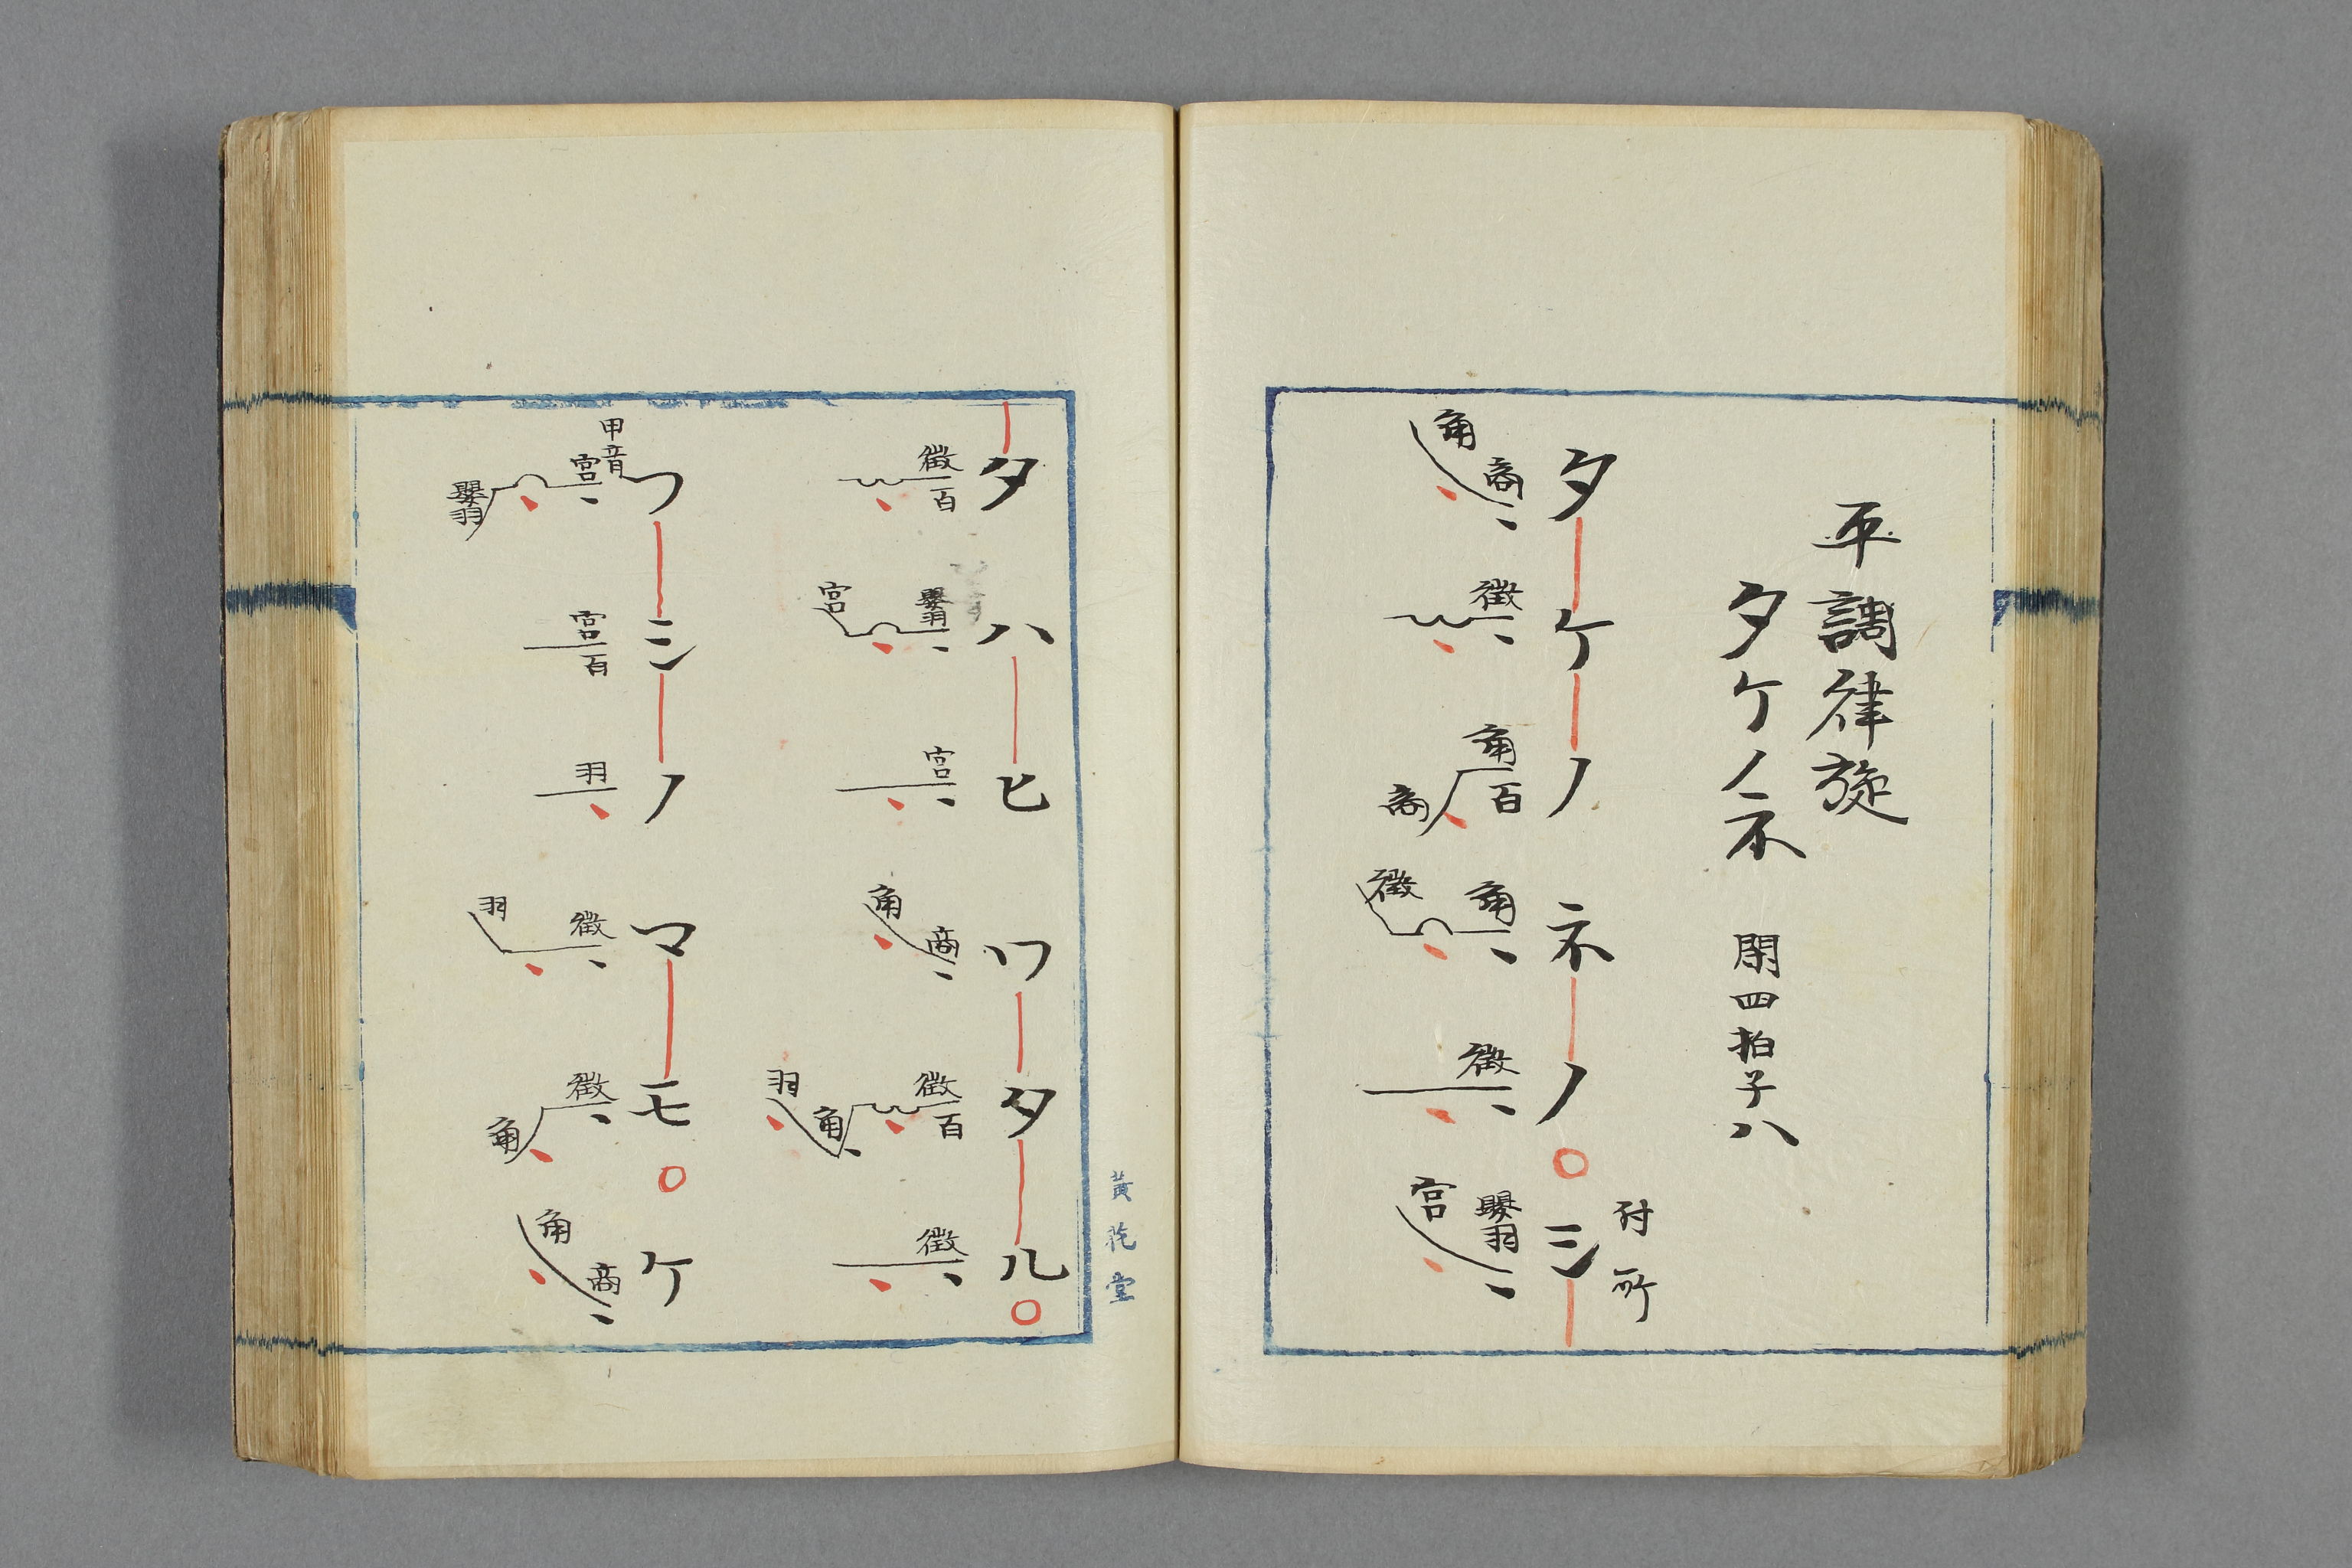 平調律旋
タケノネ 閑四拍子八
付所
タケノネノ○シ
商角 徴 角百商 角徴 徴 嬰羽宮
タハヒワタル○
徴百 嬰羽宮 宮 商角 徴百角羽 徴
フシノマモ○ケ
甲音
宮嬰羽 宮百 羽 徴羽 徴角 商角